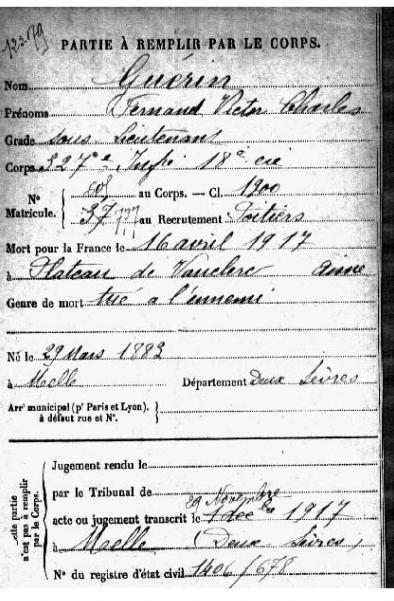 PARTIE À REMPLIR PAR LE CORPS.
Nom Guérin
Prénoms Fernand Victor Charles
Grade sous-Lieutenant
Corps 327e Infie 18e cie
N° Matricule. { au Corps. — Cl. 1900
37 au Recrutement Poitiers
Mort pour la France le 16 avril 1917
à Plateau de Vauclerc Aisne
Genre de mort tué a l'ennemi
Né le 29 Mars 1882
à Melle Département Deux Sèvres
Arrt municipal (pr Paris et Lyon), à défaut rue et N°. }
Cette partie n'est pas à remplir par le Corps.
Jugement rendu le
par le Tribunal de
29 Novembre
acte ou jugement transcrit le 1 déc bre 1917
à Melle (Deux Sèvres)
N° du registre d'état civil 1406/678